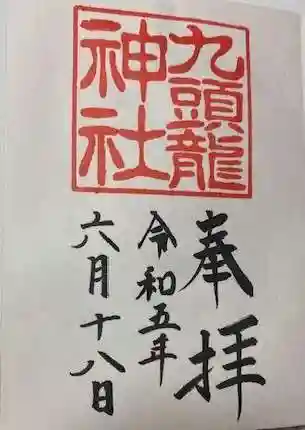 九頭龍
神社
奉拝
令和五年
六月十八日